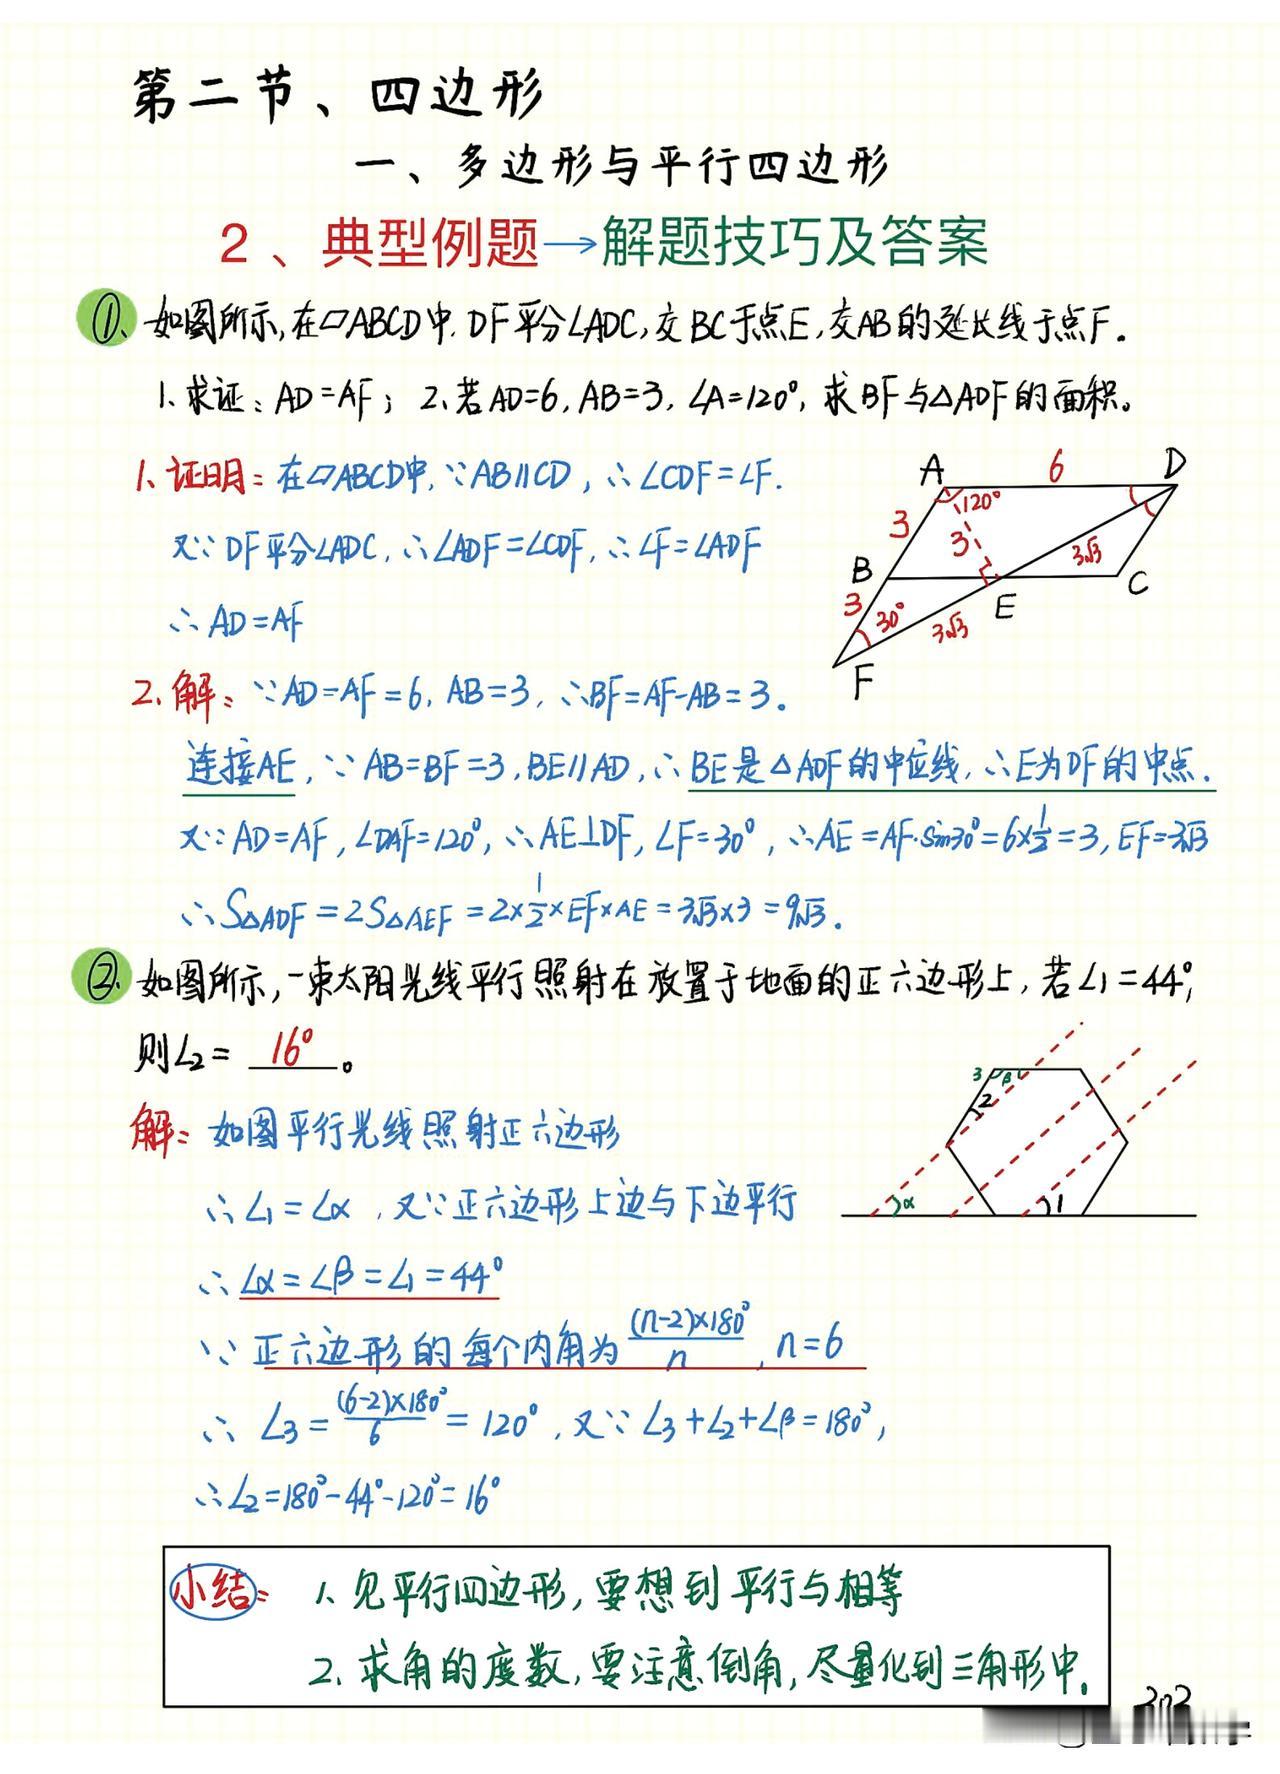 第二节、四边形
一、多边形与平行四边形
2、典型例题→解题技巧及答案
①、如图所示,在▱ABCD中,DF平分∠ADC,交BC于点E,交AB的延长线于点F.
1、求证:AD=AF; 2、若AD=6,AB=3,∠A=120°,求BF与△ADF的面积。
1、证明:在▱ABCD中,∵AB∥CD,∴∠CDF=∠F.
又∵DF平分∠ADC,∴∠ADF=∠CDF,∴∠F=∠ADF
∴AD=AF
A 6 D
120°
3 3 3√3
B E C
3 30° 3√3
F
2、解:∵AD=AF=6,AB=3,∴BF=AF-AB=3.
连接AE,∵AB=BF=3,BE∥AD,∴BE是△ADF的中位线,∴E为DF的中点.
又∵AD=AF,∠DAF=120°,∴AE⊥DF,∠F=30°,∴AE=AF·sin30°=6×1/2=3,EF=3√3
∴S△ADF=2S△AEF=2×1/2×EF×AE=3√3×3=9√3.
②、如图所示,一束太阳光线平行照射在放置于地面的正六边形上,若∠1=44°,
则∠2=16°。
3 β
2
α 1
解:如图平行光线照射正六边形
∴∠1=∠α,又∵正六边形上边与下边平行
∴∠α=∠β=∠1=44°
∵正六边形的每个内角为(n-2)×180°/n,n=6
∴∠3=(6-2)×180°/6=120°,又∵∠3+∠2+∠β=180°,
∴∠2=180°-44°-120°=16°
小结:1、见平行四边形,要想到平行与相等
2、求角的度数,要注意倒角,尽量化到三角形中。